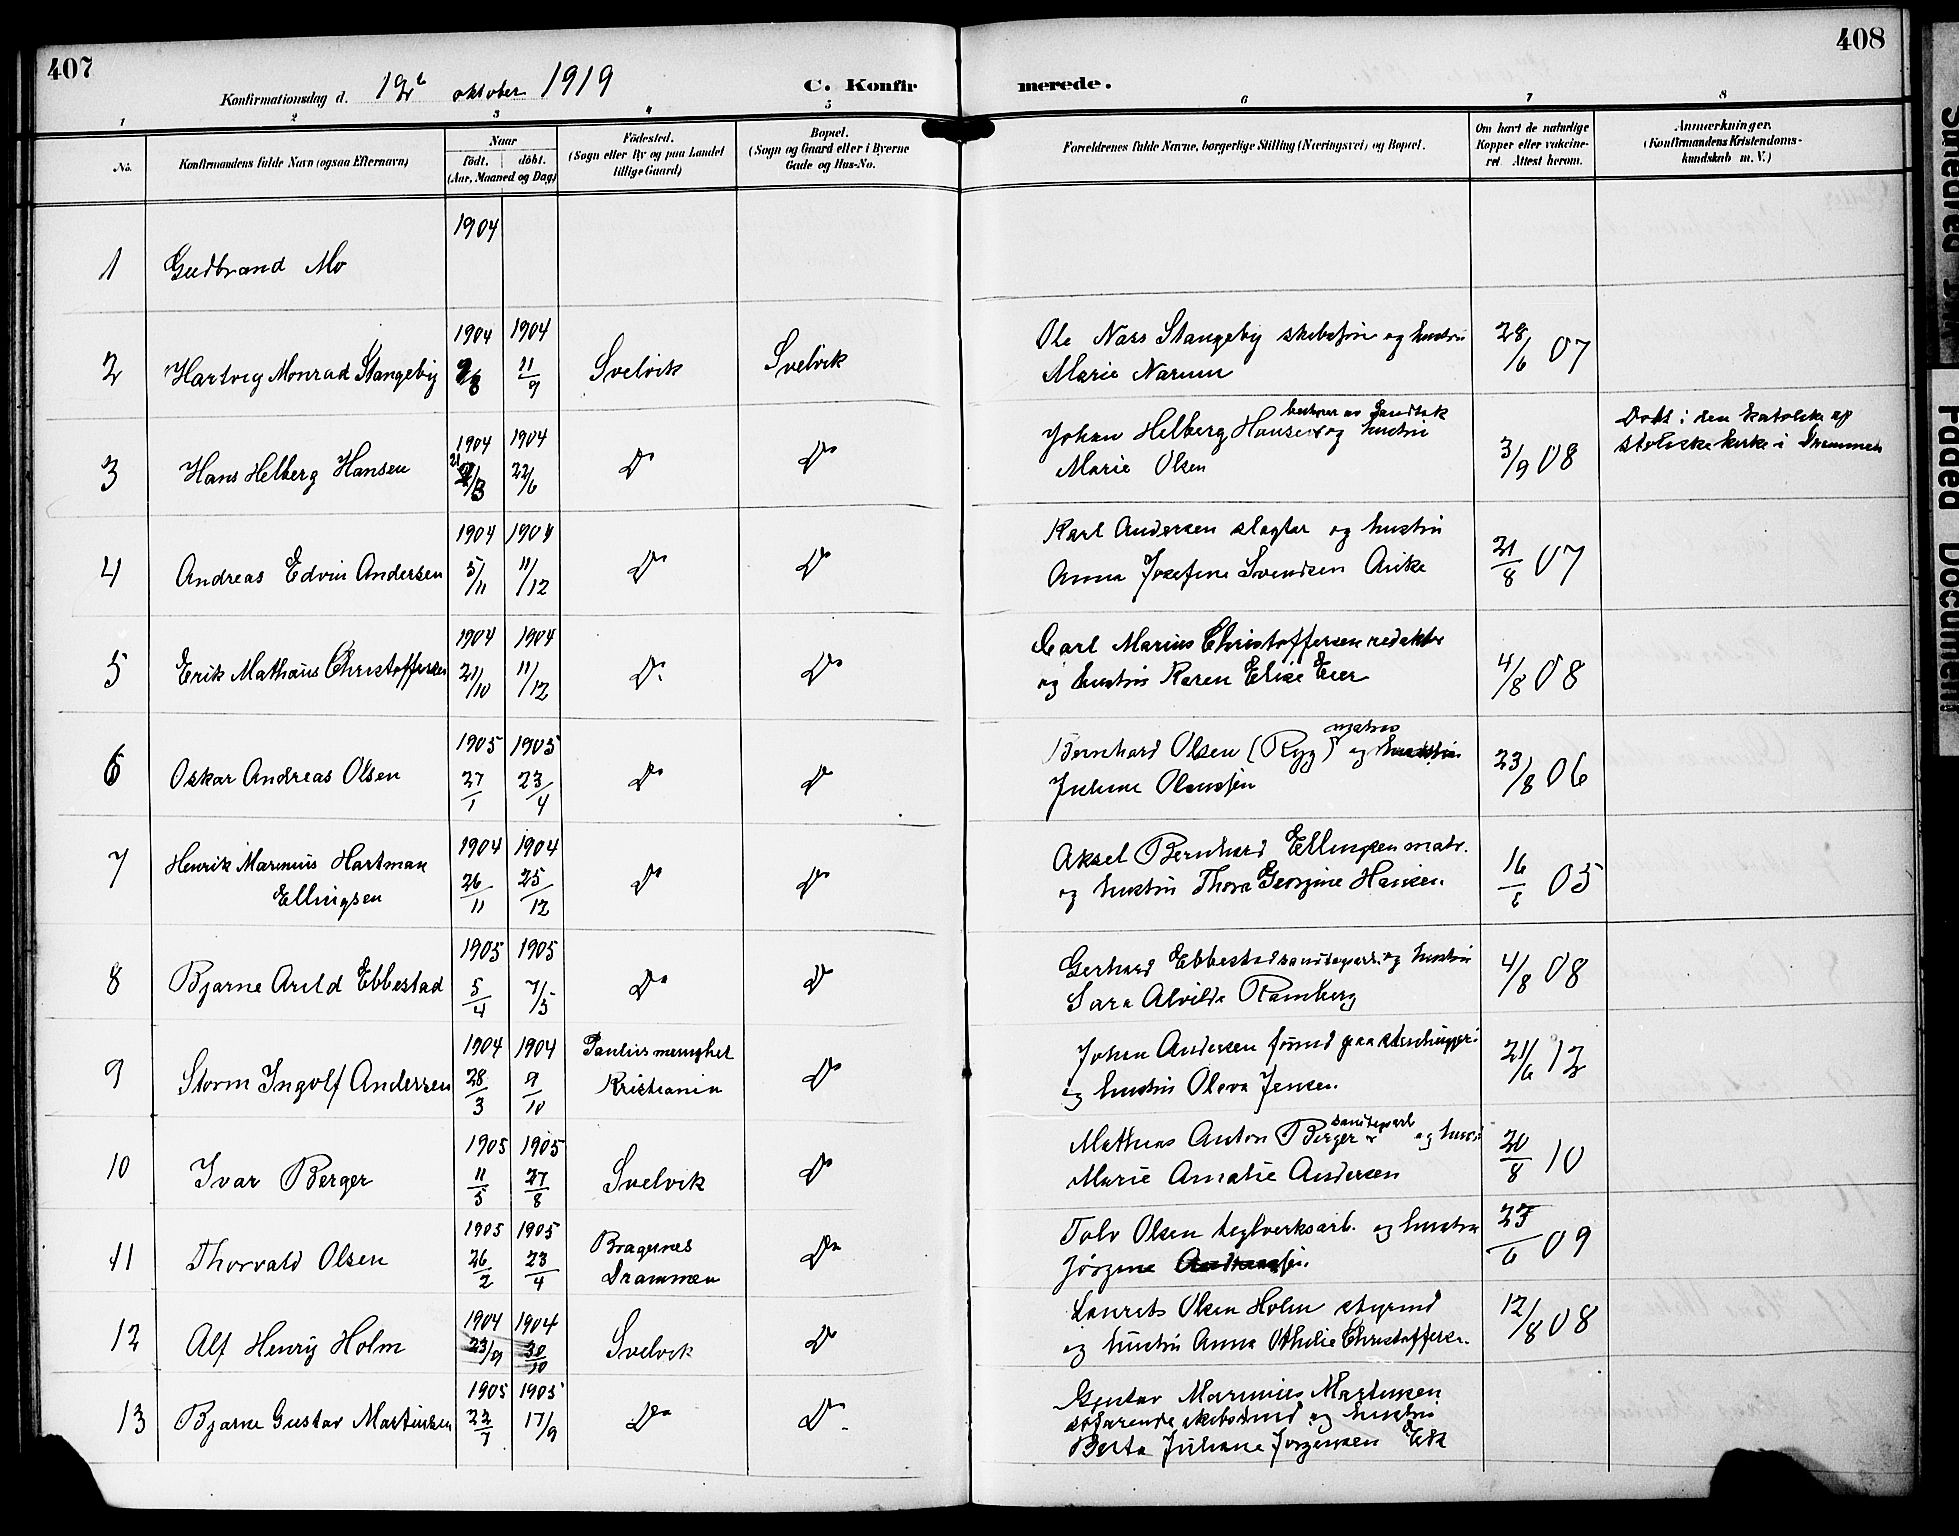 407
408
Konfirmationsdag d. 12te oktober 1919
C. Konfir
merede.
1
2
3
4
5
6
7
8
No.
Konfirmandens fulde Navn (ogsaa Efternavn)
Naar
født. døbt.
(Aar, Maaned og Dag)
Födested.
(Sogn eller By og paa Landet
tillige Gaard)
Bopæl.
(Sogn og Gaard eller i Byerne
Gade og Hus-No.
Forældrenes fulde Navne, borgerlige Stilling (Næringsvei) og Bopæl.
Om havt de naturlige
Kopper eller vakcine-
ret. Attest herom.
Anmærkninger.
(Konfirmandens Kristendoms-
kundskab m. V.)
1904
1 Gudbrand Mo
1904 1904
Ole Nars Stangeby og hustru 28/6 07
2 Hartvig Monrad Stangeby 11/9 Svelvik Svelvik
Marie Narum
1904 1904
Johan Helberg Hansen og hustru
3 Hans Helberg Hansen 22/6 Do Do
Marie Olsen 3/9 08
Døbt i den katolske ap
stoliske kirke i Drammen
1904 1904
Karl Andersen slagter og hustru
4 Andreas Edvin Andersen 5/11 11/12 Do Do
Anna Josefine Svendsen 21/8 07
1904 1904
Carl Marius Christoffersen redaktør
5 Erik Mathæus Christoffersen 21/10 11/12 Do Do
og hustru Karen Elise Eier 4/8 08
1905 1905
matros
Bernhard Olsen (Ryg) og hustru
6 Oskar Andreas Olsen 27/1 23/4 Do Do
23/8 06
1904 1904
Aksel Bernhard Ellingsen matr.
7 Henrik Marinius Hartman
Ellingsen 26/11 25/12 Do Do
og hustru Thora Georgine Hansen. 05
1905 1905
Gerhard Ebbestad og hustru
8 Bjarne Arild Ebbestad 5/4 7/5 Do Do
Sara Alvilde Ramberg 4/8 08
1904 1904 Paulus menighet
Johan Andersen
9 Storm Ingolf Andersen 28/3 9/10 Kristiania Do
og hustru Olava Jensen. 21/6 12
1905 1905
Mathias Anton Berger og hust
10 Ivar Berger 11/5 27/8 Svelvik Do
Marie Amalie Andersen 20/8 10
1905 1905 Bragernes
Tolv Olsen teglverksarb. og hustru
11 Thorvald Olsen 26/2 23/4 Drammen Do
Jørgine 09
1904 1904
Laurits Olsen Holm styrmd
12 Alf Henry Holm 23/9 30/10 Svelvik Do
og hustru Anna Othilie Christoffersen. 12/8 08
1905 1905
Gustav Marinius Martinsen
13 Bjarne Gustav Martinsen 22/7 17/9 Do Do
søfarende og hustru
Berta Juliane Jørgensen Eik
Skadet Dokument
Damaged Document